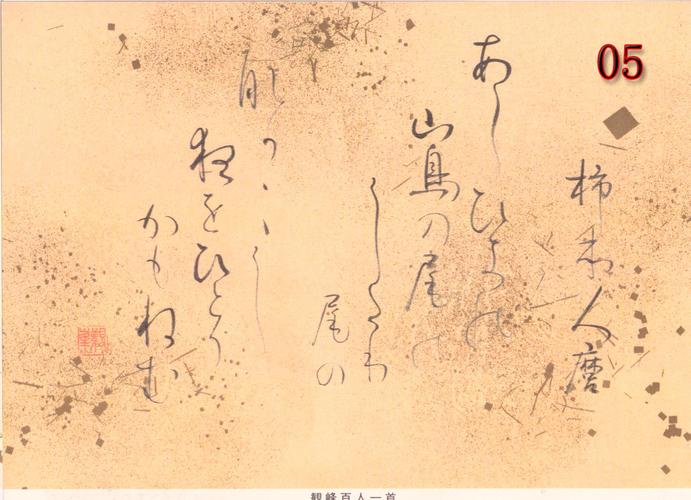 05
柿本人麿
あしひきの
山鳥の尾の
したり
尾の
那可ゝゝし
夜をひとり
かもねむ
観峰百人一首